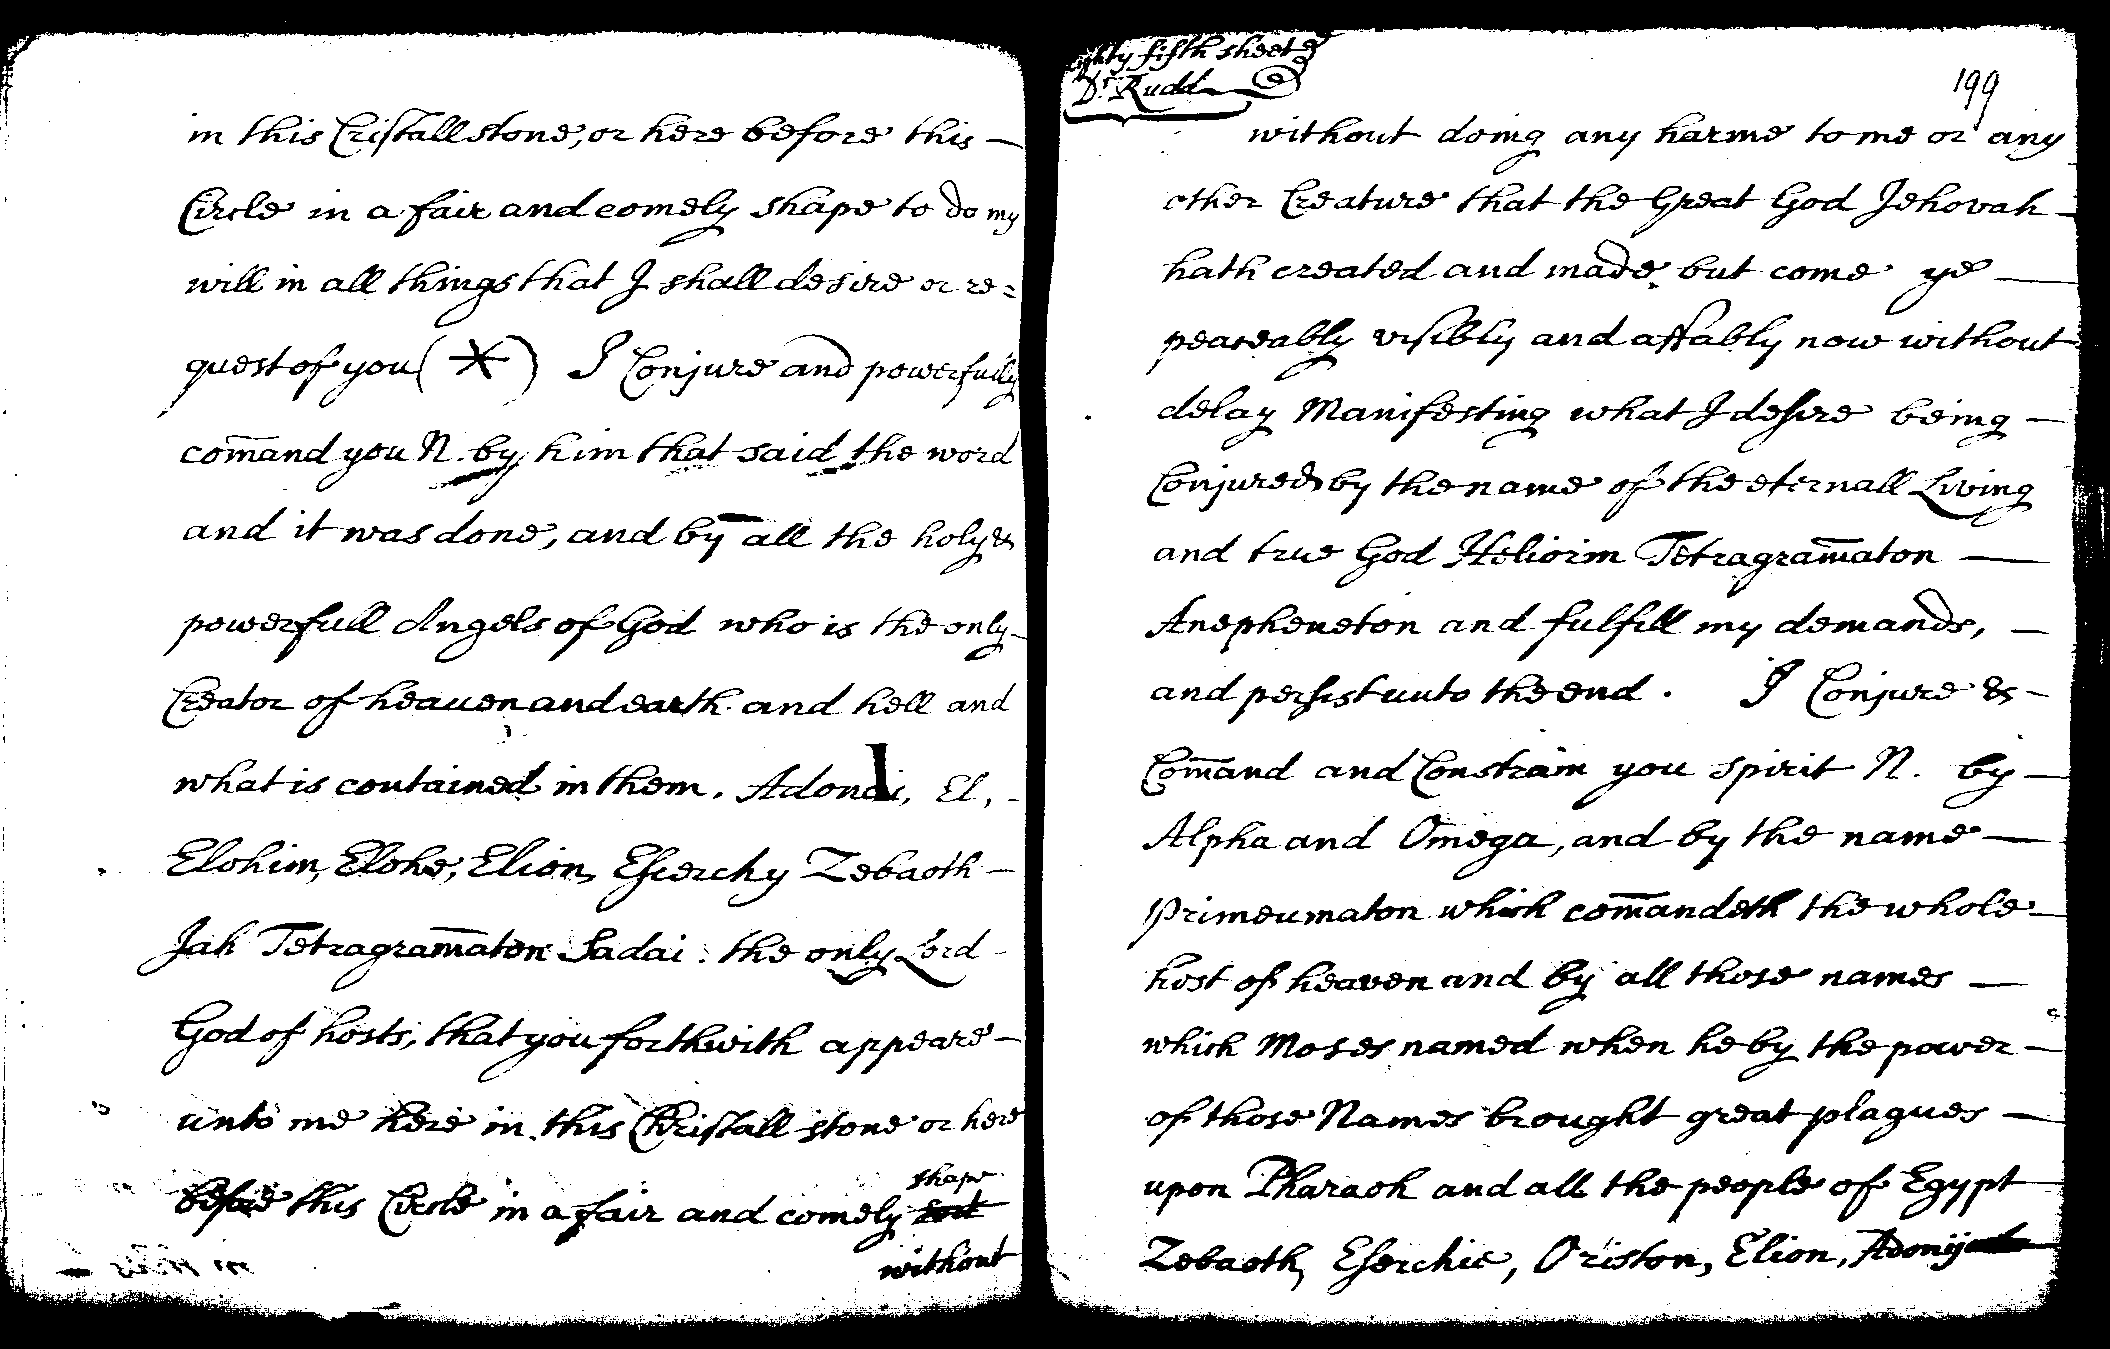 in this Cristall stone, or here before this —
Circle in a fair and comely shape to do my
will in all things that I shall desire or re=
quest of you (*) I Conjure and powerfully
com̄and you N. by him that said the word
and it was done, and by all the holy &
powerfull Angels of God who is the only
Creator of heauen and earth and hell and
what is contained in them. Adonai, El,
Elohim, Elohe, Elion, Escerchy Zebaoth —
Jah Tetragram̄aton Sadai: the only Lord
God of hosts, that you forthwith appeare —
unto me here in this Christall stone or here
before this Circle in a fair and comely shape
without
eighty fifth sheet
Dr. Rudd
199
without doing any harme to me or any
other Creature that the Great God Jehovah —
hath created and made, but come ye —
peaceably visibly and affably now without
delay Manifesting what I desire being —
Conjured by the name of the eternall Living
and true God Heliorim Tetragram̄aton —
Anepheneton and fulfill my demands, —
and persist unto the end. I Conjure & —
Com̄and and Constrain you spirit N. by —
Alpha and Omega, and by the name —
Primeumaton which com̄andeth the whole —
host of heaven and by all those names —
which Moses named when he by the power —
of those Names brought great plagues —
upon Pharaoh and all the people of Egypt
Zebaoth, Escerchie, Oriston, Elion,